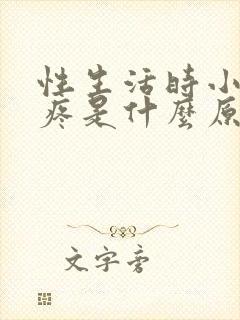 性生活時小
疼是什麼原
文字旁